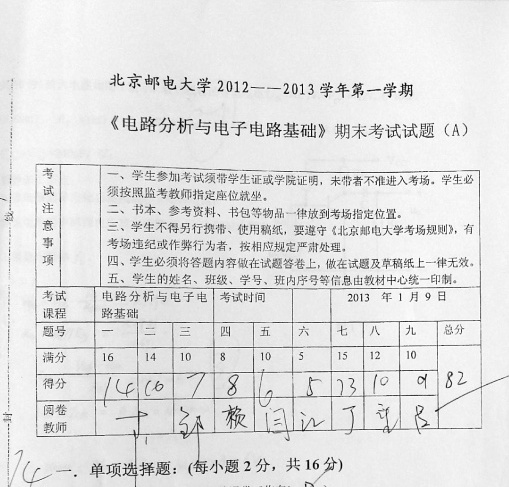 北京邮电大学 2012——2013 学年第一学期
《电路分析与电子电路基础》期末考试试题（A）
考试注意事项
一、学生参加考试须带学生证或学院证明，未带者不准进入考场。学生必
须按照监考教师指定座位就坐。
二、书本、参考资料、书包等物品一律放到考场指定位置。
三、学生不得另行携带、使用稿纸，要遵守《北京邮电大学考场规则》，有
考场违纪或作弊行为者，按相应规定严肃处理。
四、学生必须将答题内容做在试题答卷上，做在试题及草稿纸上一律无效。
五、学生的姓名、班级、学号、班内序号等信息由教材中心统一印制。
考试课程 电路分析与电子电路基础 考试时间 2013 年 1 月 9 日
题号 一 二 三 四 五 六 七 八 九 总分
满分 16 14 10 8 10 5 15 12 10
得分 14 10 7 8 6 5 13 10 9 82
阅卷教师 邹 赖 闫 江 丁
14 一. 单项选择题：(每小题 2 分，共 16 分)